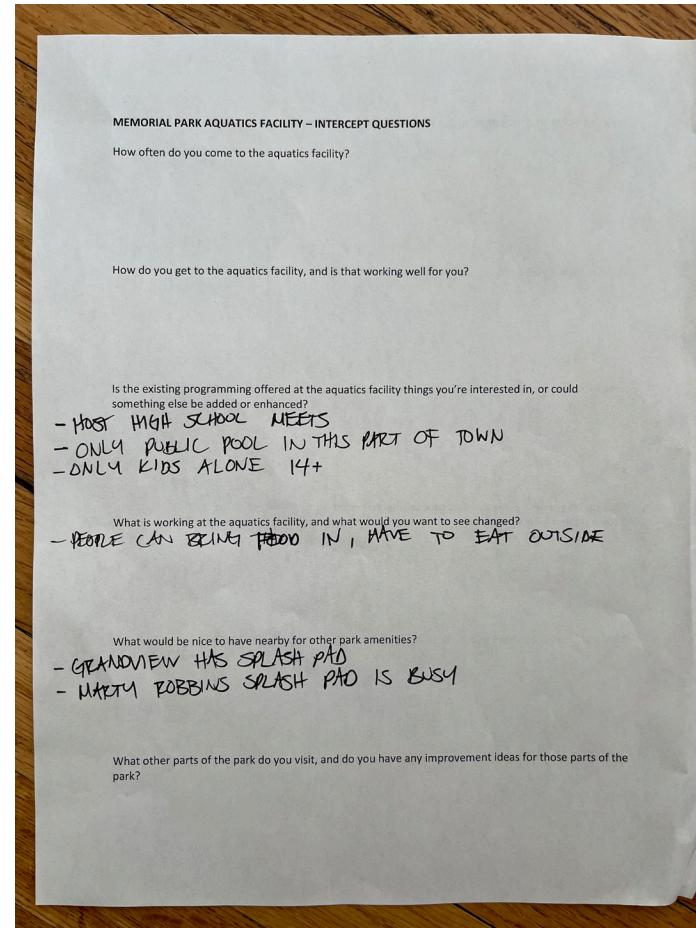 MEMORIAL PARK AQUATICS FACILITY – INTERCEPT QUESTIONS
How often do you come to the aquatics facility?
How do you get to the aquatics facility, and is that working well for you?
Is the existing programming offered at the aquatics facility things you're interested in, or could
something else be added or enhanced?
- HOST HIGH SCHOOL MEETS
- ONLY PUBLIC POOL IN THIS PART OF TOWN
- ONLY KIDS ALONE 14+
What is working at the aquatics facility, and what would you want to see changed?
- PEOPLE CAN BRING FOOD IN, HAVE TO EAT OUTSIDE
What would be nice to have nearby for other park amenities?
- GRANDVIEW HAS SPLASH PAD
- MARTY ROBBINS SPLASH PAD IS BUSY
What other parts of the park do you visit, and do you have any improvement ideas for those parts of the
park?